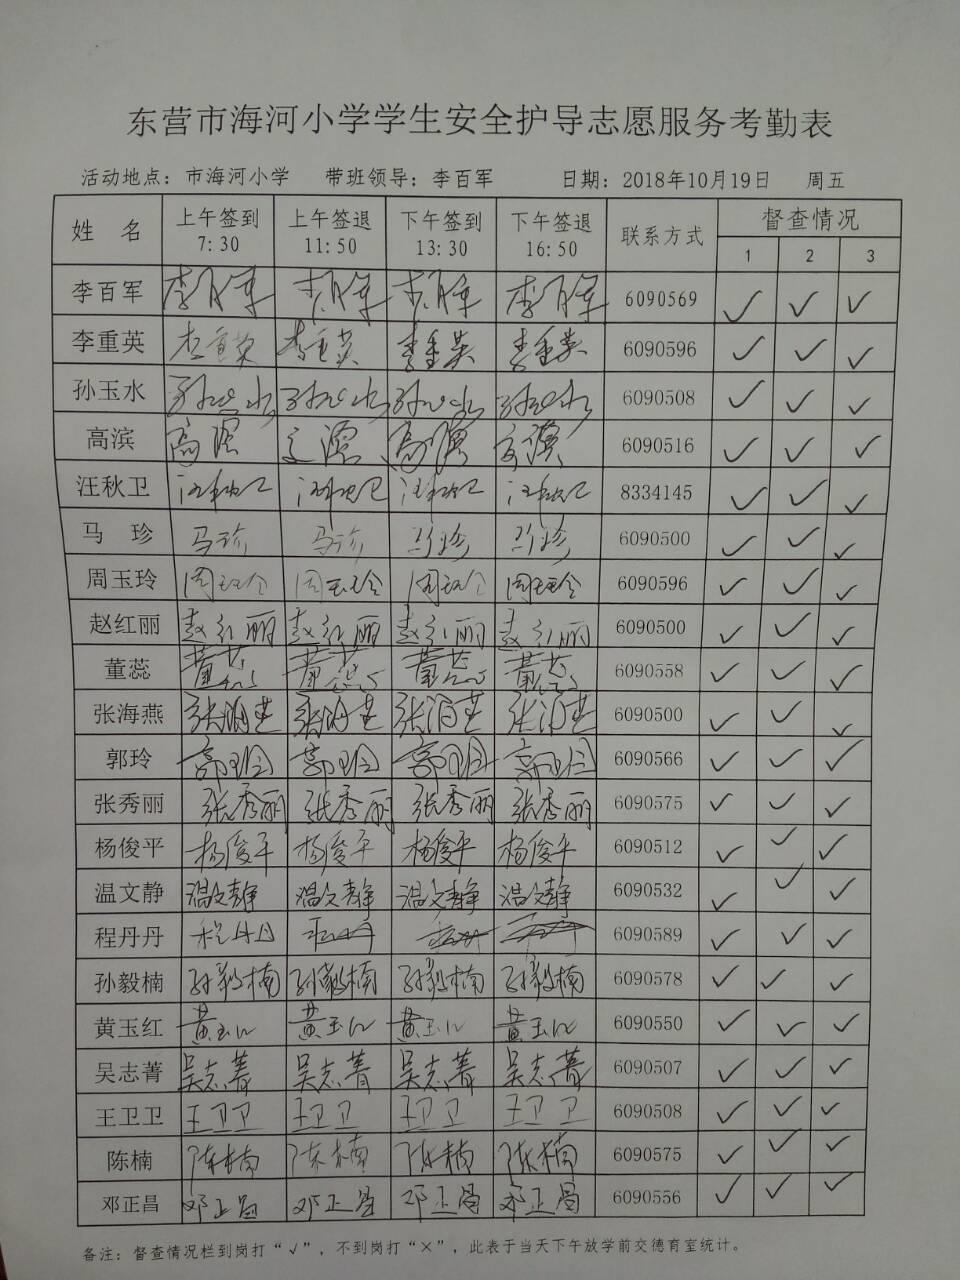 东营市海河小学学生安全护导志愿服务考勤表
活动地点：市海河小学 带班领导：李百军 日期：2018年10月19日 周五
姓 名 上午签到 7:30 上午签退 11:50 下午签到 13:30 下午签退 16:50 联系方式 督查情况
1 2 3
李百军 6090569 ✓ ✓ ✓
李重英 李重英 李重英 李重英 李重英 6090596 ✓ ✓ ✓
孙玉水 孙玉水 孙玉水 孙玉水 孙玉水 6090508 ✓ ✓ ✓
高滨 高滨 高滨 高滨 高滨 6090516 ✓ ✓ ✓
汪秋卫 汪秋卫 汪秋卫 汪秋卫 汪秋卫 8334145 ✓ ✓ ✓
马 珍 马珍 马珍 马珍 马珍 6090500 ✓ ✓ ✓
周玉玲 周玉玲 周玉玲 周玉玲 周玉玲 6090596 ✓ ✓ ✓
赵红丽 赵红丽 赵红丽 赵红丽 赵红丽 6090500 ✓ ✓ ✓
董蕊 董蕊 董蕊 董蕊 董蕊 6090558 ✓ ✓ ✓
张海燕 张海燕 张海燕 张海燕 张海燕 6090500 ✓ ✓ ✓
郭玲 郭玲 郭玲 郭玲 郭玲 6090566 ✓ ✓ ✓
张秀丽 张秀丽 张秀丽 张秀丽 张秀丽 6090575 ✓ ✓ ✓
杨俊平 杨俊平 杨俊平 杨俊平 杨俊平 6090512 ✓ ✓ ✓
温文静 温文静 温文静 温文静 温文静 6090532 ✓ ✓ ✓
程丹丹 程丹丹 6090589 ✓ ✓ ✓
孙毅楠 孙毅楠 孙毅楠 孙毅楠 孙毅楠 6090578 ✓ ✓ ✓
黄玉红 黄玉红 黄玉红 黄玉红 黄玉红 6090550 ✓ ✓ ✓
吴志菁 吴志菁 吴志菁 吴志菁 吴志菁 6090507 ✓ ✓ ✓
王卫卫 王卫卫 王卫卫 王卫卫 王卫卫 6090508 ✓ ✓ ✓
陈楠 陈楠 陈楠 陈楠 陈楠 6090575 ✓ ✓ ✓
邓正昌 邓正昌 邓正昌 邓正昌 邓正昌 6090556 ✓ ✓ ✓
备注：督查情况栏到岗打“√”，不到岗打“×”，此表于当天下午放学前交德育室统计。